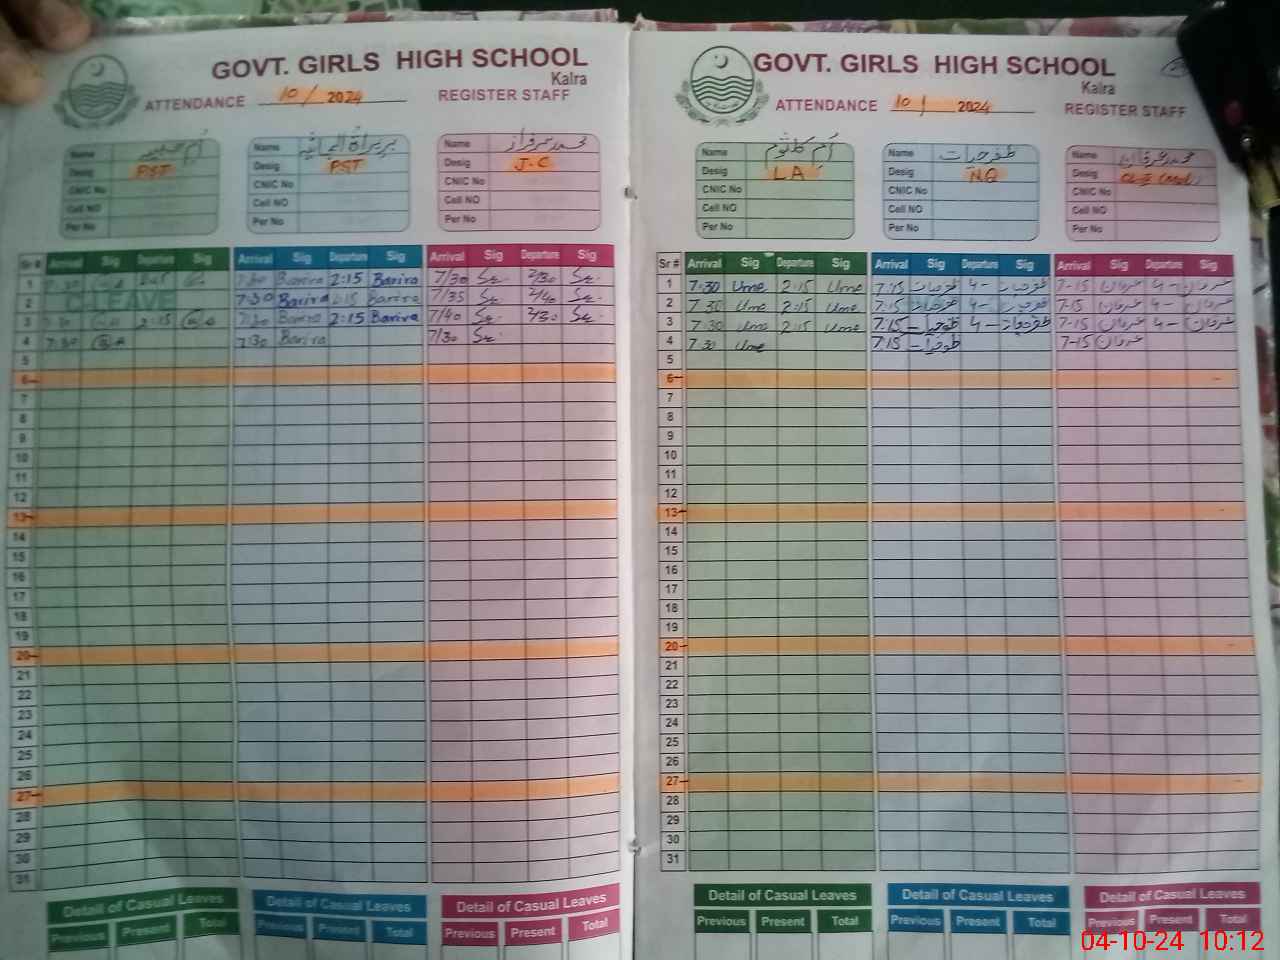 GOVT. GIRLS HIGH SCHOOL
Kalra
ATTENDANCE 10/2024 REGISTER STAFF
Name
Desig PST
CNIC No
Cell NO
Per No
Name
Desig PST
CNIC No
Cell NO
Per No
Name محمد سرفراز
Desig J.C
CNIC No
Cell NO
Per No
Sr # Arrival Sig Departure Sig Arrival Sig Departure Sig Arrival Sig Departure Sig
1 7:30 2:15 7:30 Barira 2:15 Barira 7/30 2/30
2 LEAVE 7:30 Barira 2:15 Barira 7/35 2/40
3 7:30 2:15 7:30 Barira 2:15 Barira 7/40 2/30
4 7:30 7:30 Barira 7/30
5
6
7
8
9
10
11
12
13
14
15
16
17
18
19
20
21
22
23
24
25
26
27
28
29
30
31
Detail of Casual Leaves Detail of Casual Leaves Detail of Casual Leaves
Previous Present Total Previous Present Total Previous Present Total
GOVT. GIRLS HIGH SCHOOL
Kalra
ATTENDANCE 10/ 2024 REGISTER STAFF
Name ام کلثوم
Desig LA
CNIC No
Cell NO
Per No
Name
Desig NQ
CNIC No
Cell NO
Per No
Name محمد عرفان
Desig
CNIC No
Cell NO
Per No
Sr # Arrival Sig Departure Sig Arrival Sig Departure Sig Arrival Sig Departure Sig
1 7:30 Ume 2:15 Ume 7:15 4- 7-15 عرفان 4- عرفان
2 7:30 Ume 2:15 Ume 7:15 4- 7-15 عرفان 4- عرفان
3 7:30 Ume 2:15 Ume 7:15 4- 7-15 عرفان 4- عرفان
4 7:30 Ume 7:15 7-15 عرفان
5
6
7
8
9
10
11
12
13
14
15
16
17
18
19
20
21
22
23
24
25
26
27
28
29
30
31
Detail of Casual Leaves Detail of Casual Leaves Detail of Casual Leaves
Previous Present Total Previous Present Total Previous Present Total
04-10-24 10:12